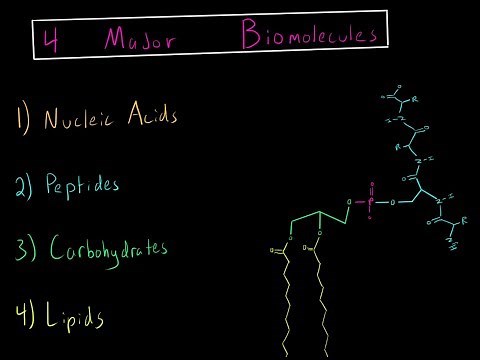 4 Major Biomolecules
1) Nucleic Acids
2) Peptides
3) Carbohydrates
4) Lipids